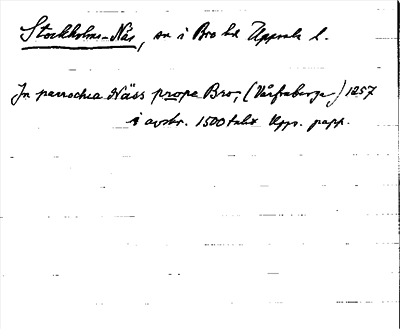 Stockholms-Näs, sn i Bro hd Uppsala l.
In parrochia Näss prope Bro, (Vårfruberga) 1257
i avskr. 1500talet Upps. papp.